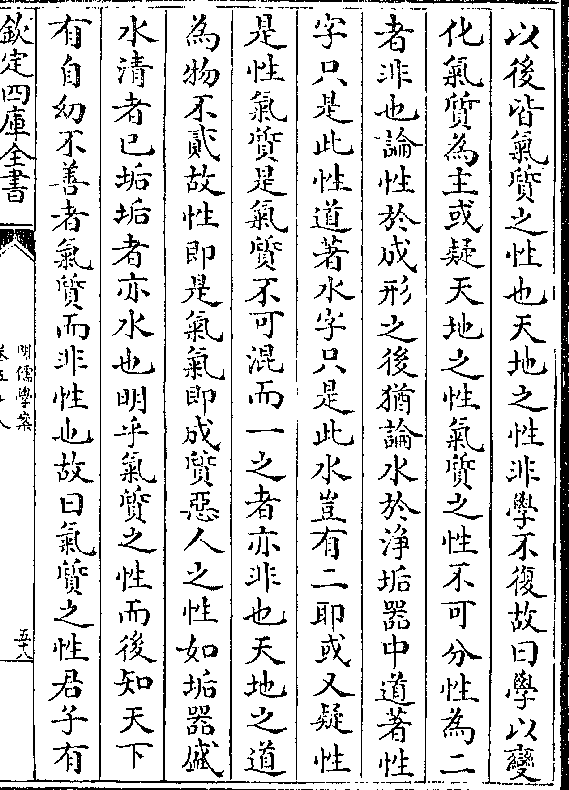 以後皆氣質之性也天地之性非學不復故曰學以變
化氣質為主或疑天地之性氣質之性不可分性為二
者非也論性於成形之後猶論水於淨垢器中道著性
字只是此性道著水字只是此水豈有二耶或又疑性
是性氣質是氣質不可混而一之者亦非也天地之道
為物不貳故性即是氣氣即成質惡人之性如垢器盛
水清者已垢垢者亦水也明乎氣質之性而後知天下
有自幼不善者氣質而非性也故曰氣質之性君子有
欽定四庫全書
明儒學案
五十八